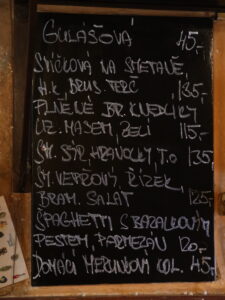 GULÁŠOVÁ 45,-
SVÍČKOVÁ NA SMETANĚ,
H.K, BRUS. TERČ 135,-
PLNĚNÉ BR. KNEDLÍKY
UZ. MASEM, ZELÍ 115,-
SM. SÝR, HRANOLKY, T.O 135,-
SM. VEPŘOVÝ ŘÍZEK,
BRAM. SALÁT 125,-
ŠPAGHETTI S BAZALKOVÝM
PESTEM, PARMEZÁN 120,-
DOMÁCÍ MERUŇKOVÝ KOL. 45,-